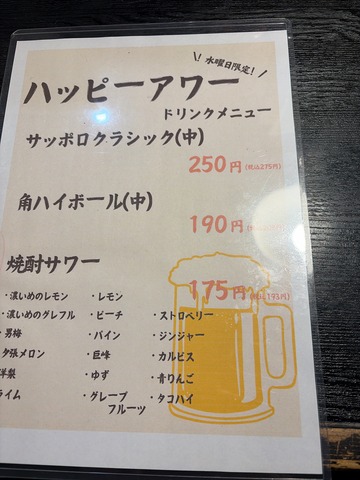 水曜日限定！
ハッピーアワー
ドリンクメニュー
サッポロクラシック(中)
250円 (税込275円)
角ハイボール(中)
190円
焼酎サワー
175円 (税込193円)
・濃いめのレモン ・レモン ・ストロベリー
・濃いめのグレフル ・ピーチ ・ジンジャー
・男梅 ・パイン ・カルピス
夕張メロン ・巨峰 ・青りんご
洋梨 ・ゆず ・タコハイ
ライム ・グレープ
フルーツ